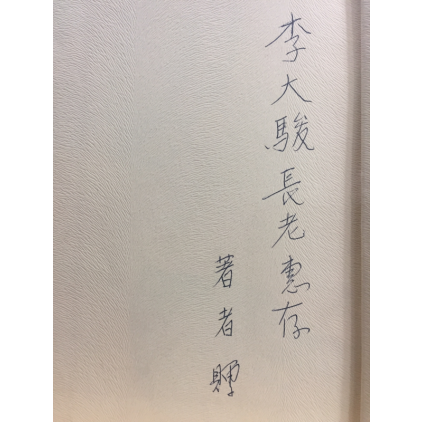 李大駿長老惠存
著者